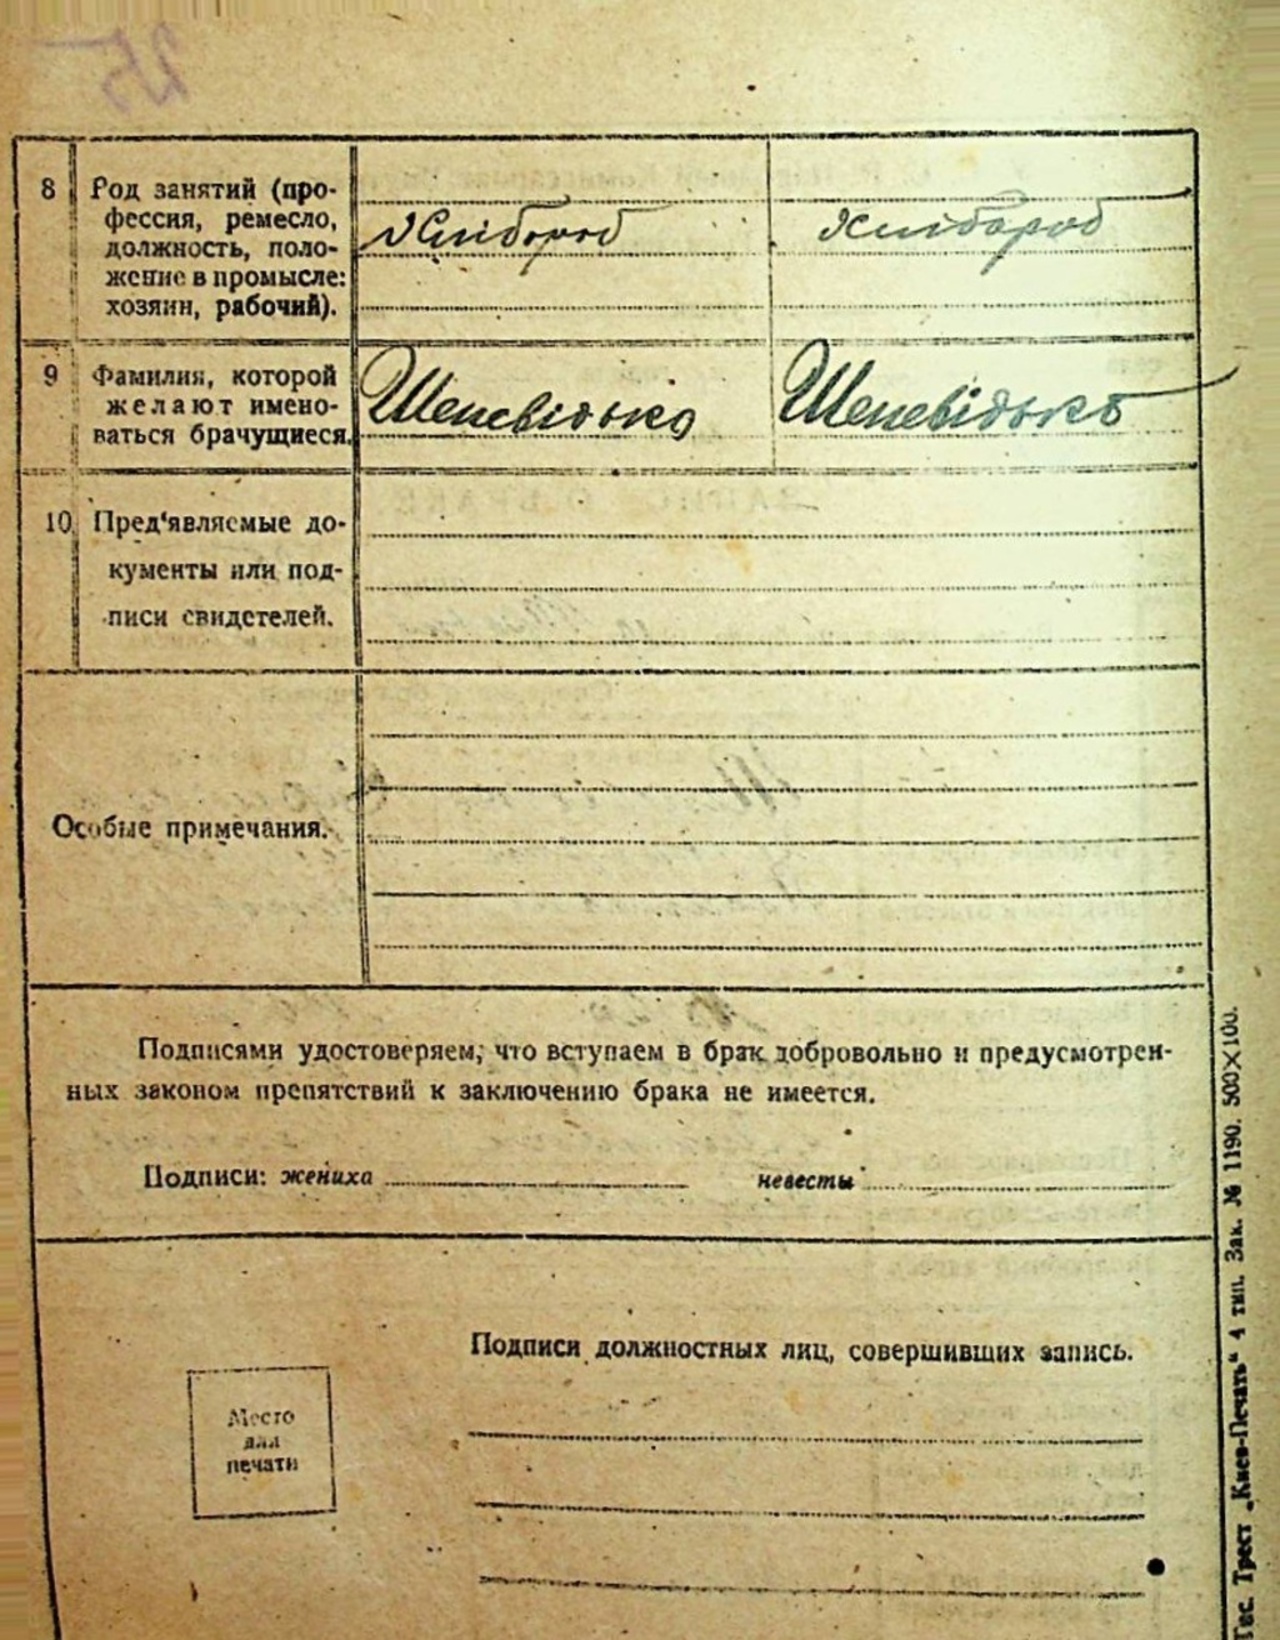 25
8 Род занятий (про-
фессия, ремесло,
должность, поло-
жение в промысле:
хозяин, рабочий).
Хлібороб Хлібороб
9 Фамилия, которой
желают имено-
ваться брачущиеся.
Шепевідько Шепевідько
10. Пред‘являемые до-
кументы или под-
писи свидетелей.
Особые примечания.
Подписями удостоверяем, что вступаем в брак добровольно и предусмотрен-
ных законом препятствий к заключению брака не имеется.
Подписи: жениха невесты
Подписи должностных лиц, совершивших запись.
Место
для
печати
Гос. Трест „Киев-Печать“ 4 тип. Зак. № 1190. 500×100.